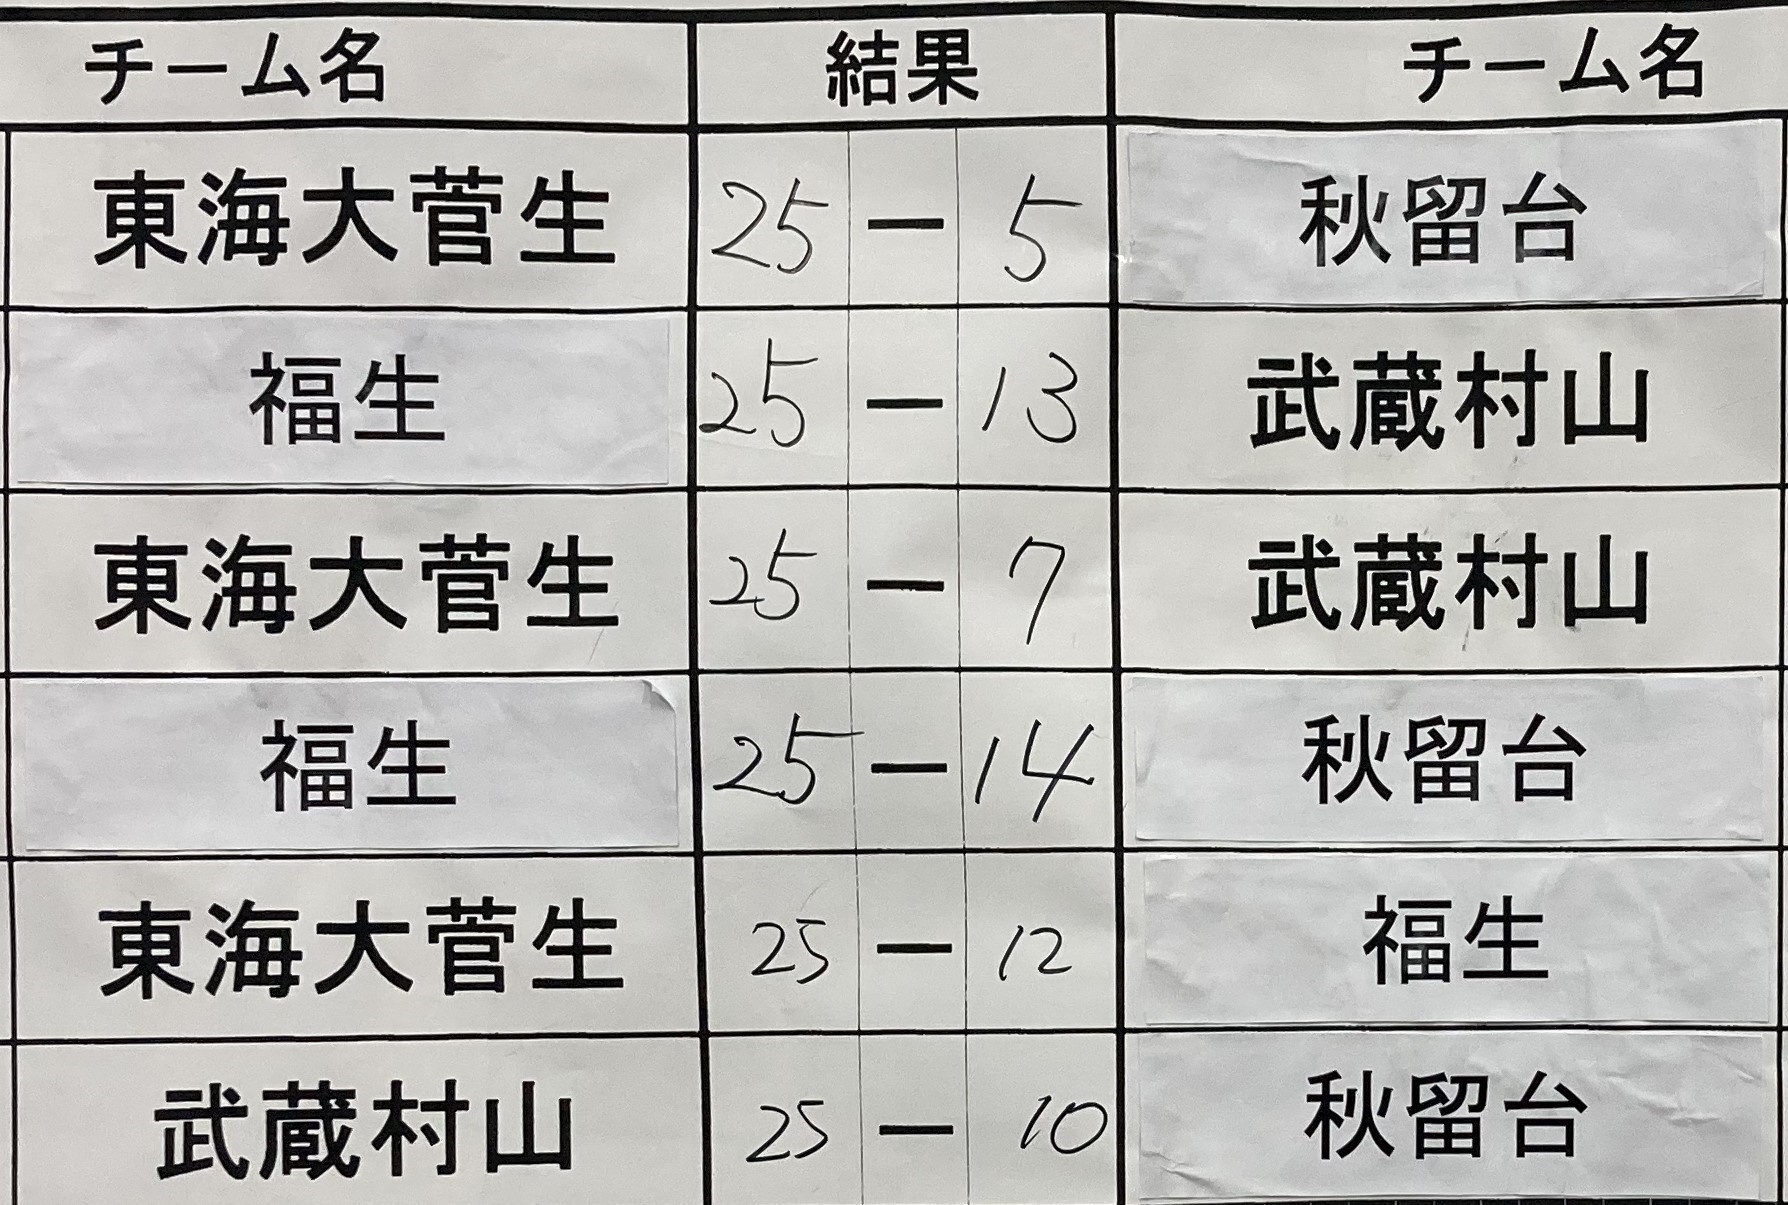 チーム名 結果 チーム名
東海大菅生 25 ― 5 秋留台
福生 25 ― 13 武蔵村山
東海大菅生 25 ― 7 武蔵村山
福生 25 ― 14 秋留台
東海大菅生 25 ― 12 福生
武蔵村山 25 ― 10 秋留台